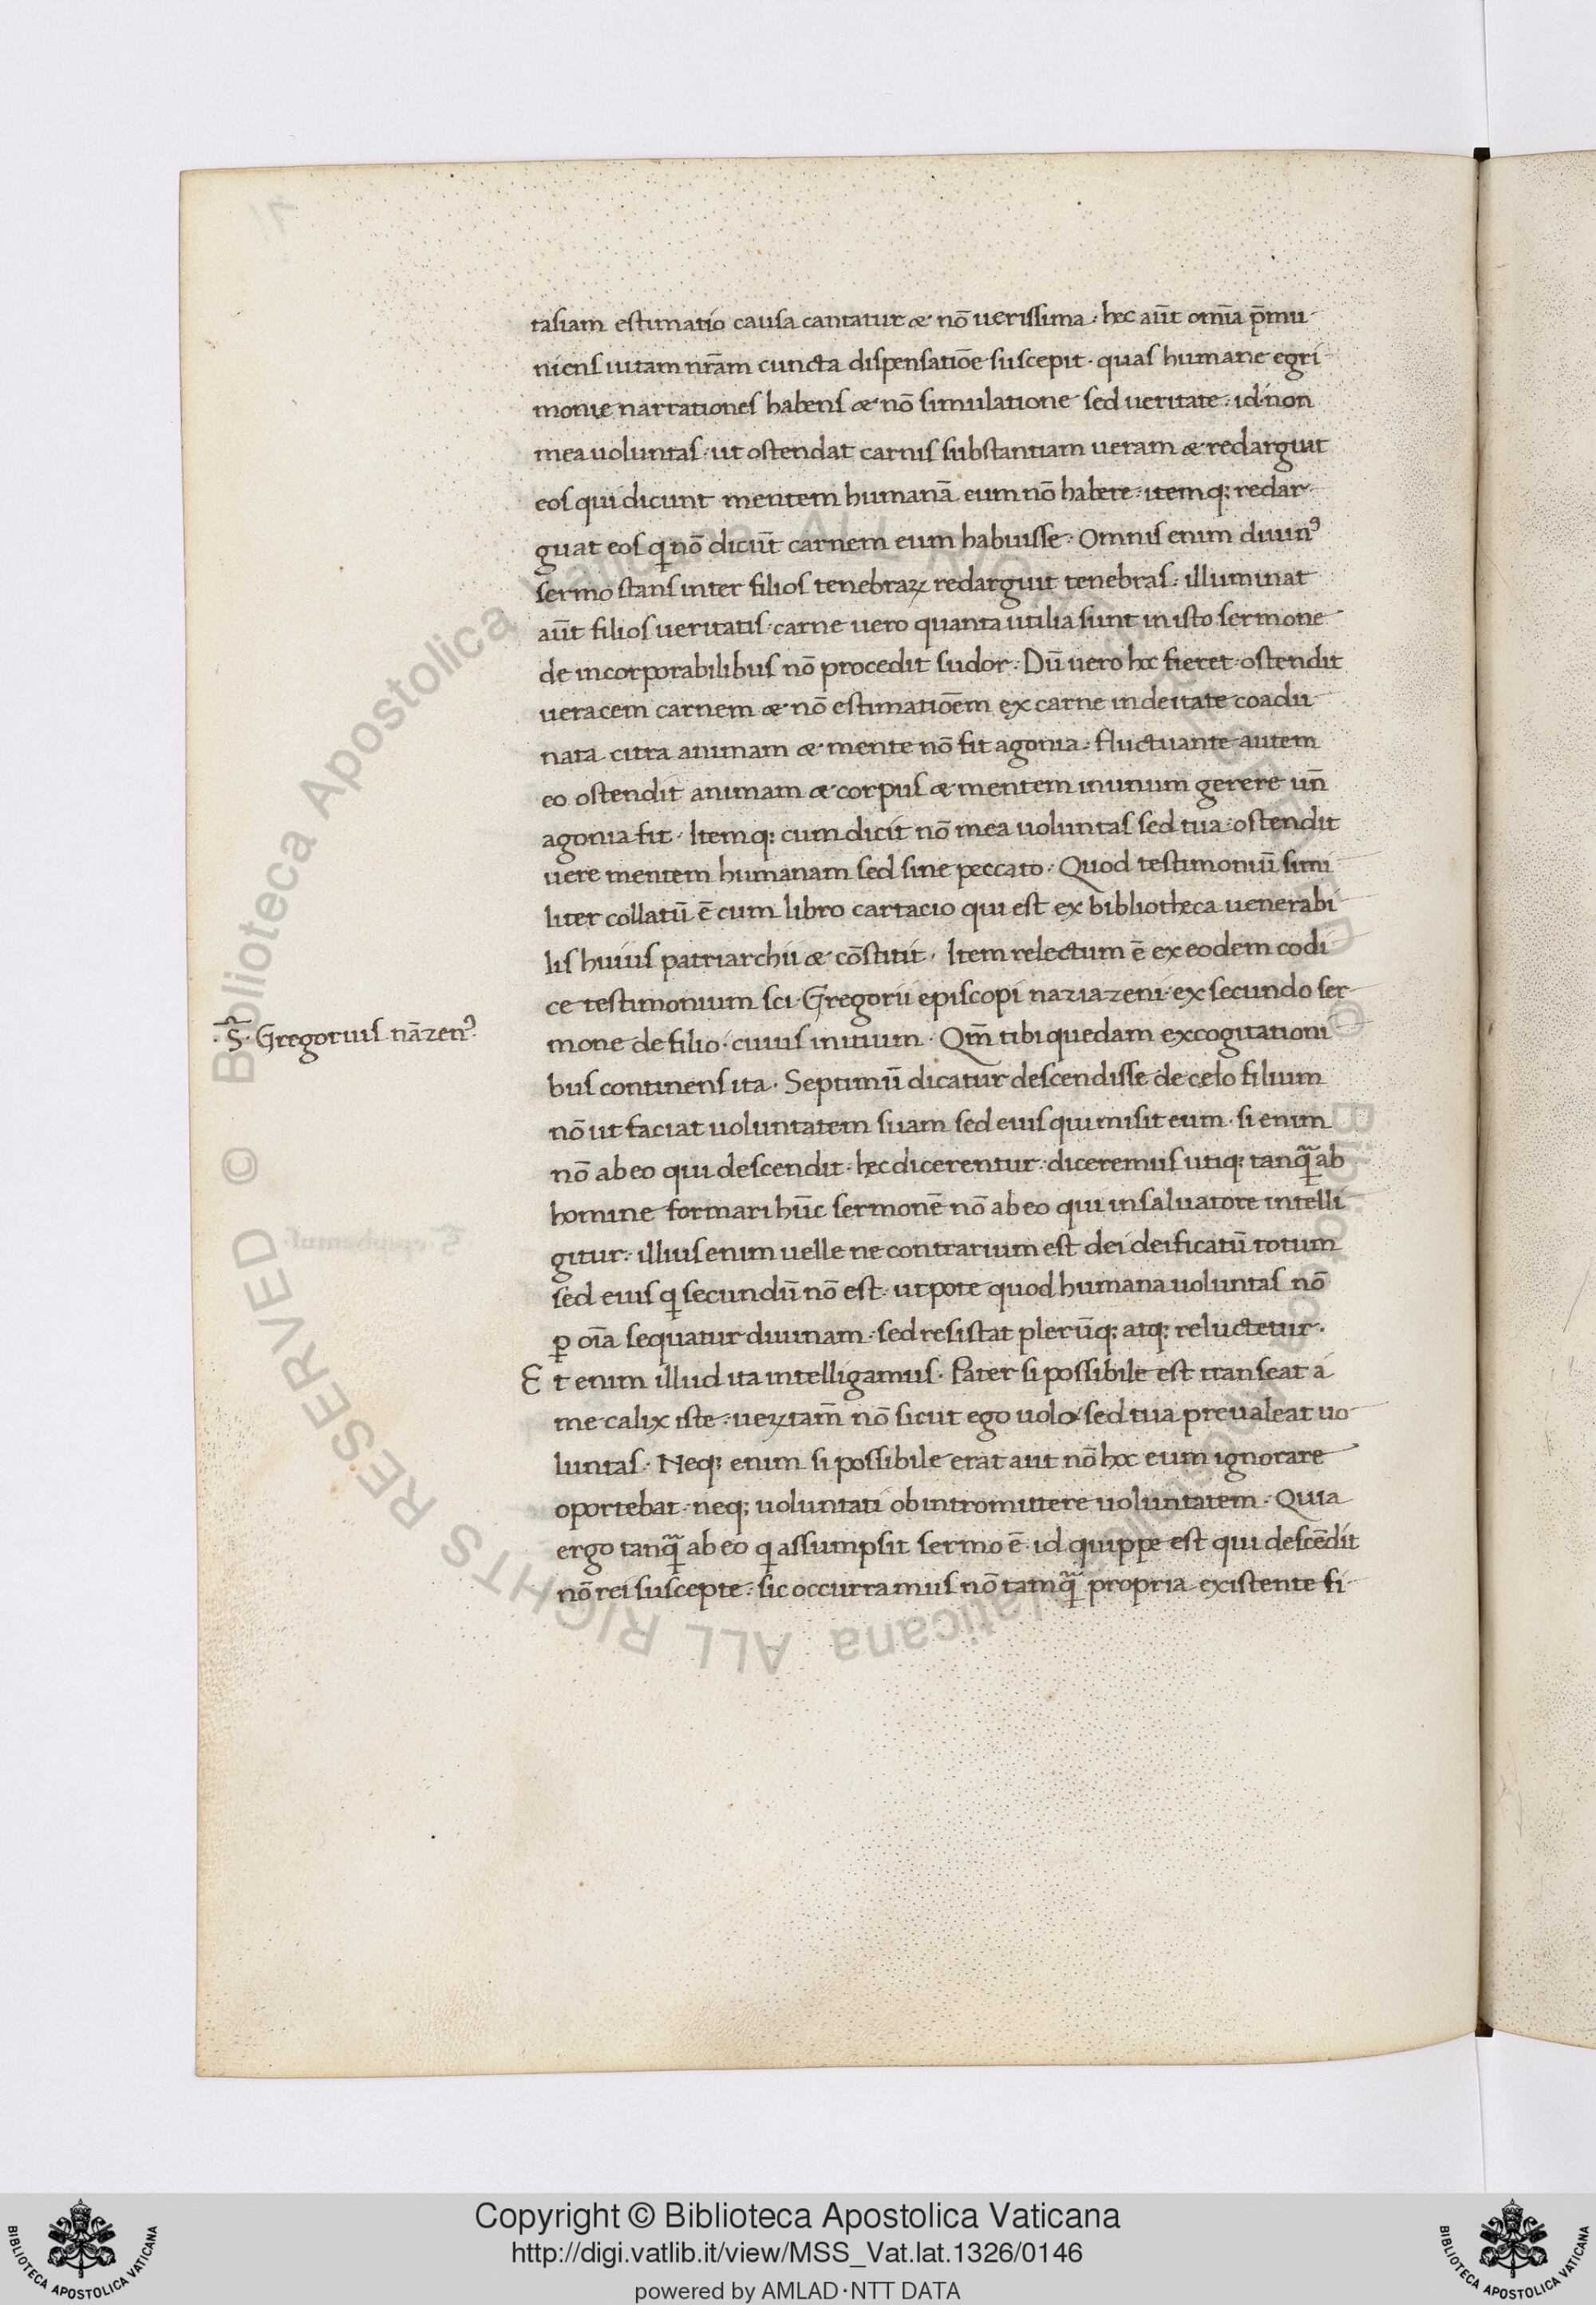 tasiam estimatio causa cantatur & nō uerissima. hec aūt omīa p̄mu
niens uitam nr̄am cuncta dispensatiōe suscepit. quas humane egri
monie narrationes habens & nō simulatione sed ueritate. id non
mea uoluntas. ut ostendat carnis substantiam ueram & redarguat
eos qui dicunt mentem humanā eum nō habere. itemq; redar
guat eos qi nō dicūt carnem eum habuisse. Omnis enim diuinꝰ
sermo stans inter filios tenebraꝝ redarguit tenebras. illuminat
aūt filios ueritatis. carne uero quanta utilia sunt in isto sermone
de incorporabilibus nō procedit sudor. Dū uero hoc fieret. ostendit
ueracem carnem & nō estimatiōem ex carne in deitate coadu
nata citra animam & mente nō fit agonia. fluctuante autem
eo ostendit animam & corpus & mentem in unum gerere un̄
agonia fit. Itemq; cum dicit nō mea uoluntas sed tua. ostendit
uere mentem humanam sed sine peccato. Quod testimoniū simi
liter collatū ē cum libro cartacio qui est ex bibliotheca uenerabi
lis huius patriarchii & cōstitit. Item relectum ē ex eodem codi
ce testimonium sci. Gregorii episcopi naziazeni. ex secundo ser
.S̄. Gregorius nāzenꝰ.
mone de filio. cuius initium. Qm̄ tibi quedam excogitationi
bus continens ita. Septimū dicatur descendisse de celo filium
nō ut faciat uoluntatem suam sed eius qui misit eum. si enim
nō ab eo qui descendit. hec dicerentur. diceremus utiq; tanq̄ ab
homine formari hūc sermonē nō ab eo qui in saluatore intelli
gitur. illius enim uelle ne contrarium est dei deificatū totum
sed eius qi secundū nō est. utpote quod humana uoluntas nō
ꝑ oīa sequatur diuinam. sed resistat plerūq; atq; reluctetur.
Et enim illud ita intelligamus. Pater si possibile est transeat á
me calix iste. ueꝝtam̄ nō sicut ego uolo sed tua preualeat uo
luntas. Neq; enim si possibile erat aut nō hoc eum ignorare
oportebat. neq; uoluntati ob intromittere uoluntatem. Quia
ergo tanq̄ ab eo qi assumpsit sermo ē. id quippe est qui descēdit
nō rei suscepte. sic occurramus nō tamq̄ propria existente fi
Copyright © Biblioteca Apostolica Vaticana
http://digi.vatlib.it/view/MSS_Vat.lat.1326/0146
powered by AMLAD·NTT DATA
BIBLIOTECA APOSTOLICA VATICANA
BIBLIOTECA APOSTOLICA VATICANA